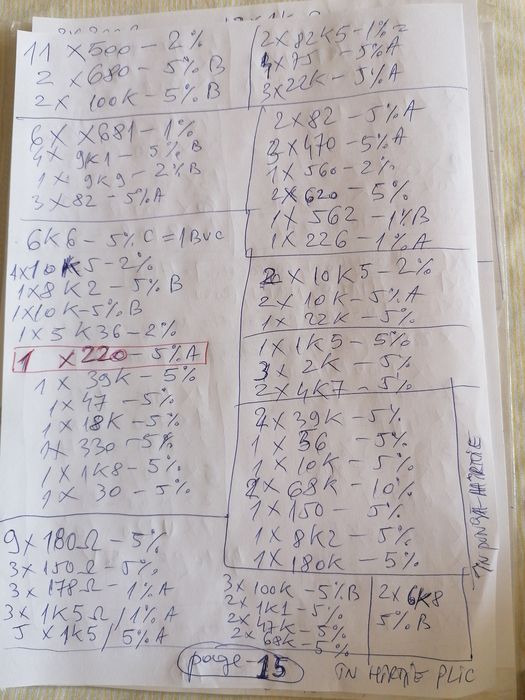 11 x 500 - 2%
2 x 680 - 5% B
2 x 100K - 5% B
6 x x681 - 1%
4 x 9K1 - 5% B
1 x 9K9 - 2% B
3 x 82 - 5% A
6K6 - 5% C = 1BUC
1x8K2 - 5% B
1x10K-5% B
1x5K36 - 2%
1 x 220 - 5% A
1 x 39K - 5%
1x47 - 5%
1x18K - 5%
1x 330 - 5%
1x 1K8 - 5%
1x 30 - 5%
9x180Ω - 5%
3x150Ω - 5%
3x178Ω - 1% A
3x1K5Ω / 1% A
5 x1K5 / 5% A
2x82K5 - 1%
4x75 - 5% A
3x22K - 5% A
2x82 - 5% A
3x470 - 5% A
1x560 - 2%
2x620 - 5%
1x562 - 1% B
1x226 - 1% A
2x10K5 - 2%
2x10K - 5% A
1x22K - 5%
1x1K5 - 5%
3x2K - 5%
2x4K7 - 5%
2x39K - 5%
1x56 - 5%
1x10K - 5%
2x68K - 10%
1x150 - 5%
1x8K2 - 5%
1x180K - 5%
3x100K - 5% B
2x1K1 - 5%
2x47K - 5%
2x68K - 5%
2x6K8
5% B
IN PUNGA HARTIE
page 15
IN HARTIE PLIC